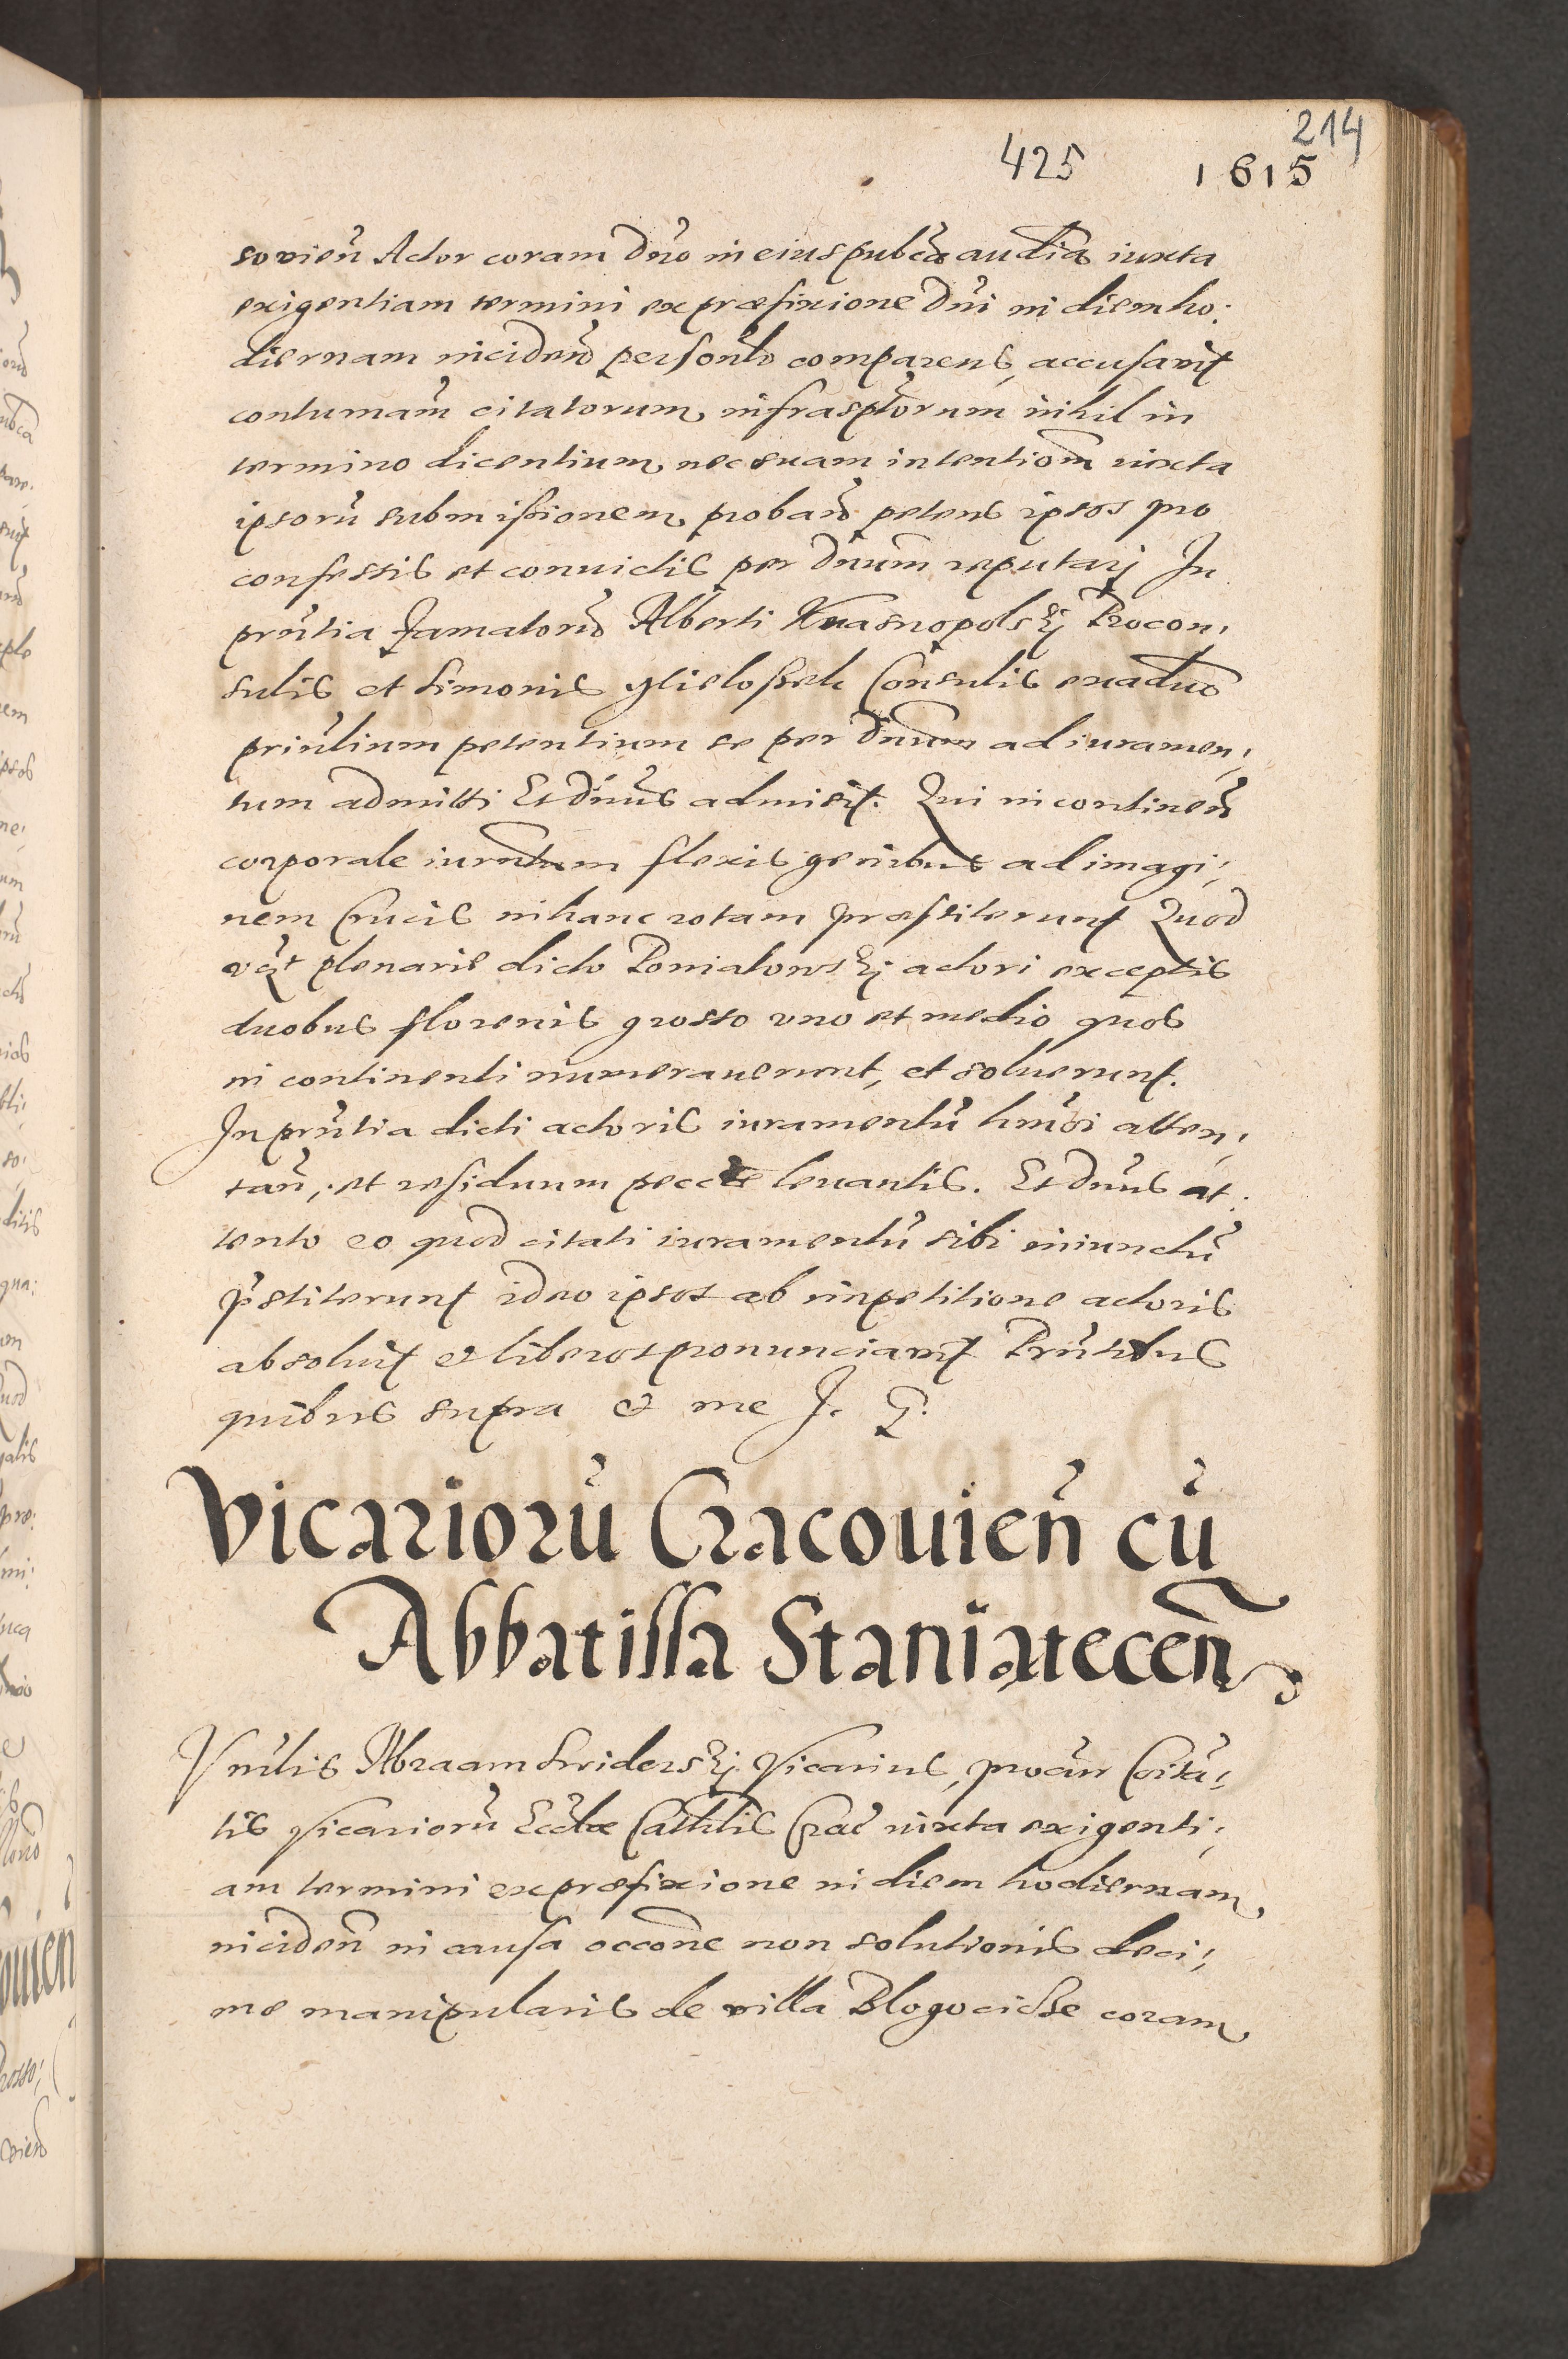 214
425 1615
sovien̄ Actor coram Dn̄o in eius publ̄ca audīa iuxta
exigentiam termini ex præfixione Dn̄i in diem ho:
diernam inciden̄ person̄lr comparens, accusavit
contumam̄ citatorum infrasp̄torum nihil in
termino dicentium nec suam intentiom̄ iuxta
ipsorū submissionem proban̄ petens ipsos pro
confessis et convictis per Dnūm reputarj In
prn̄tia famatorū Alberti Krasnopolskj Procon,
sulis et Simonis Consulis
prin̄lium petentium se per Dnūm ad iuramen,
tum admitti Et Dn̄us admisit. Qui incontinen̄
corporale iurn̄tum flexis genibus ad imagi,
nem Crucis in hanc rotam præstiterunt Quod
plenarie dicto Poniatowskj actori exceptis
duobus florenis grosso uno et medio quos
in continenti numeraverunt, et solverunt.
In prn̄tia dicti actoris iuramentū hm̄oi atten,
tan̄, et residuum levantis. Et Dn̄us at:
tento eo quod citati iuramentū sibi iniunctū
p̄stiterunt ideo ipsos ab inpetitione actoris
absolvit et liberos pronunciavit Prn̄tibus
quibus supra & me J. G.
Vicariorū Cracovien̄ cū
Abbatissa Staniątecen̄
Vn̄lis Abraam Swiderskj Vicarius, procūr Cōita,
tis Vicariorū Ecclæ Cathlis Crac̄ iuxta exigenti,
am termini ex præfixione in diem hodiernam
inciden̄ in causa occōne non solutionis deci,
me manipularis de villa Blogocicze coram